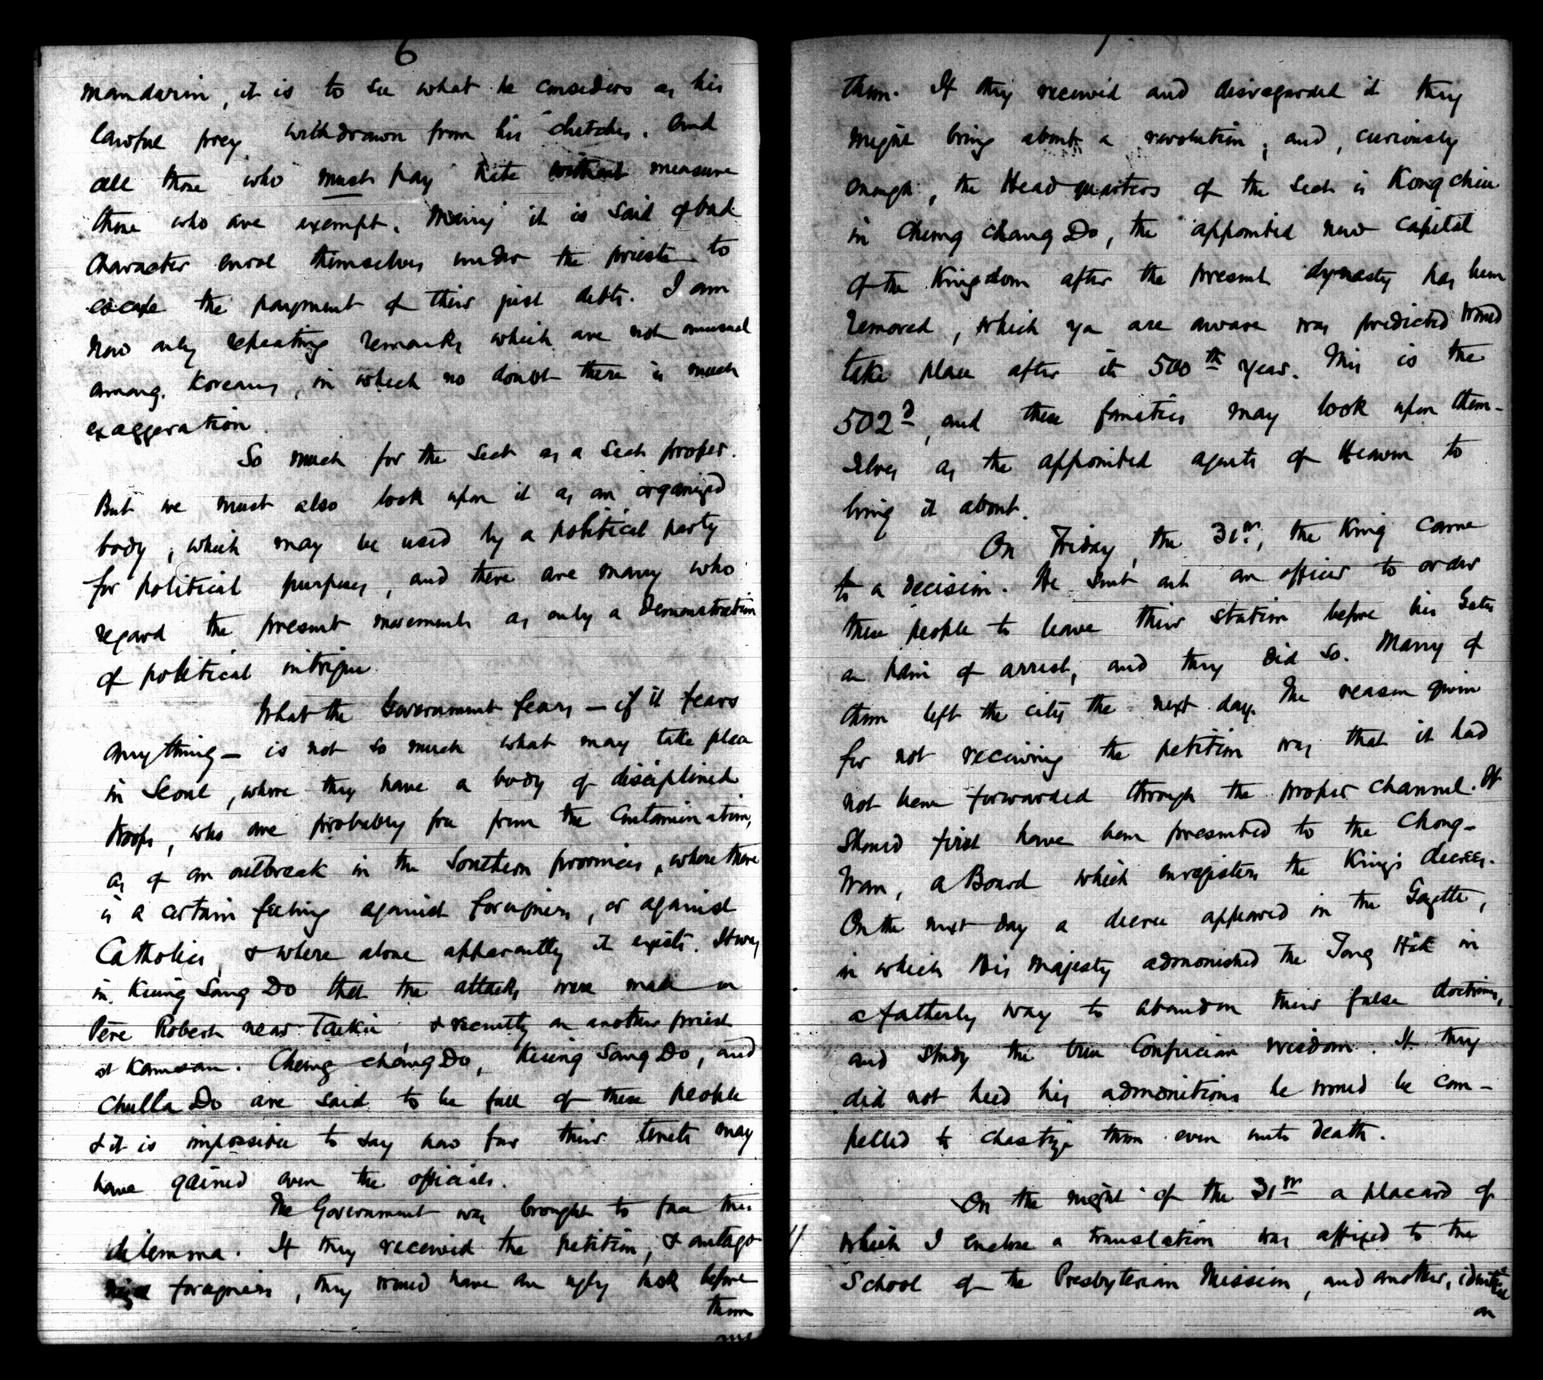 6
mandarin, it is to see what he considers as his
lawful prey withdrawn from his clutches. And
all those who must pay hate without measure
those who are exempt. Many it is said of bad
character enrol themselves under the priests to
escape the payment of their just debts. I am
now only repeating remarks which are not unusual
among Koreans, in which no doubt there is much
exaggeration.
So much for the Sect as a Sect proper.
But we must also look upon it as an organized
body, which may be used by a political party
for political purposes, and there are many who
regard the present movement as only a Demonstration
of political intrigue.
What the Government fears – if it fears
anything – is not so much what may take place
in Seoul, where they have a body of disciplined
troops, who are probably free from the Contamination,
as of an outbreak in the Southern provinces, where there
is a certain feeling against foreigners, or against
Catholics, & where alone apparently it exists. It was
in Kiung Sang Do that the attacks were made on
Père Robert near Taiku & recently on another priest
at Kamsan. Chung chong Do, Kiung Sang Do, and
Chulla Do are said to be full of these people
& it is impossible to say how far their tenets may
have gained over the officials.
The Government was brought to face this
dilemma. If they received the petition, & antago
nize foreigners, they would have an ugly task before
them
7
them. If they received and disregarded it they
might bring about a revolution; and, curiously
enough, the Head quarters of the Sect is Kong chiu
in Chung chong Do, the appointed new capital
of the Kingdom after the present dynasty has been
removed, which you are aware was predicted would
take place after its 500th year. This is the
502d, and these fanatics may look upon them-
selves as the appointed agents of Heaven to
bring it about.
On Friday, the 31st, the King came
to a decision. He sent out an officer to order
these people to leave their station before his Gates
on pain of arrest, and they did so. Many of
them left the city the next day. The reason given
for not receiving the petition was that it had
not been forwarded through the proper channel. It
should first have been presented to the Chong-
Won, a Board which enregisters the King's decrees.
On the next day a decree appeared in the Gazette,
in which His Majesty admonished the Tong Hak in
a fatherly way to abandon their false doctrines,
and study the true Confucian wisdom. If they
did not heed his admonitions he would be com-
pelled to chastize them even unto death.
On the night of the 31st a placard of
which I enclose a translation was affixed to the
School of the Presbyterian Mission, and another, identical
on